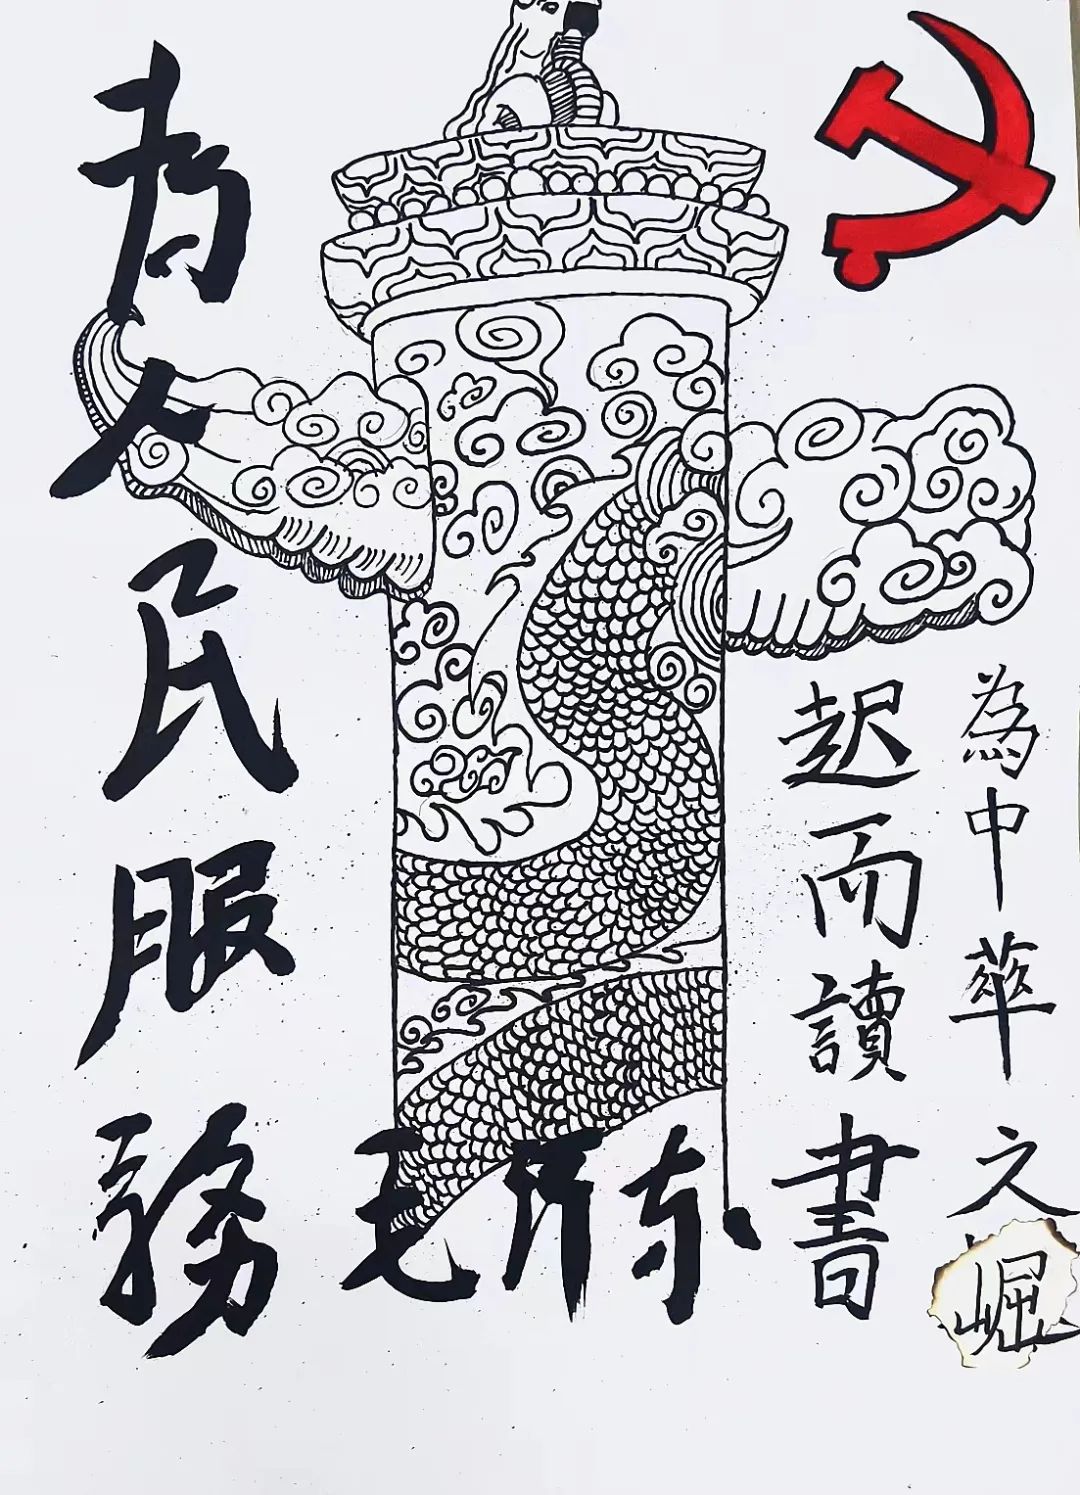 為中華之崛
起而讀書
为人民服務
毛泽东